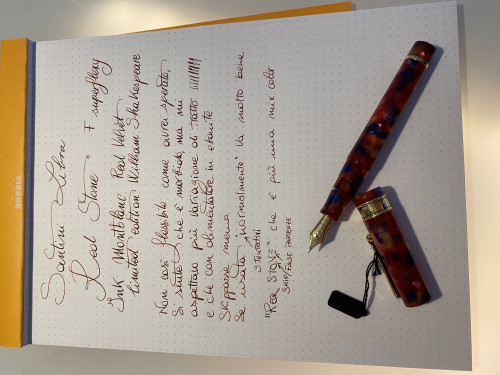 Santini Libra
Red Stone F superflexy
Ink Montblanc Red Velvet
limited edition William Shakespeare
Non così flessibile come avrei sperato,
Si sente che è morbido, ma mi
aspettavo più variazione di tratto !!!!!!!!!
e che con alimentatore in ebanite
skippasse meno
Se usata "normalmente" va molto bene
3 tentativi
"Red STONE" che è più una mix color
SKIP/FALSE PARTENZE
RHODIA